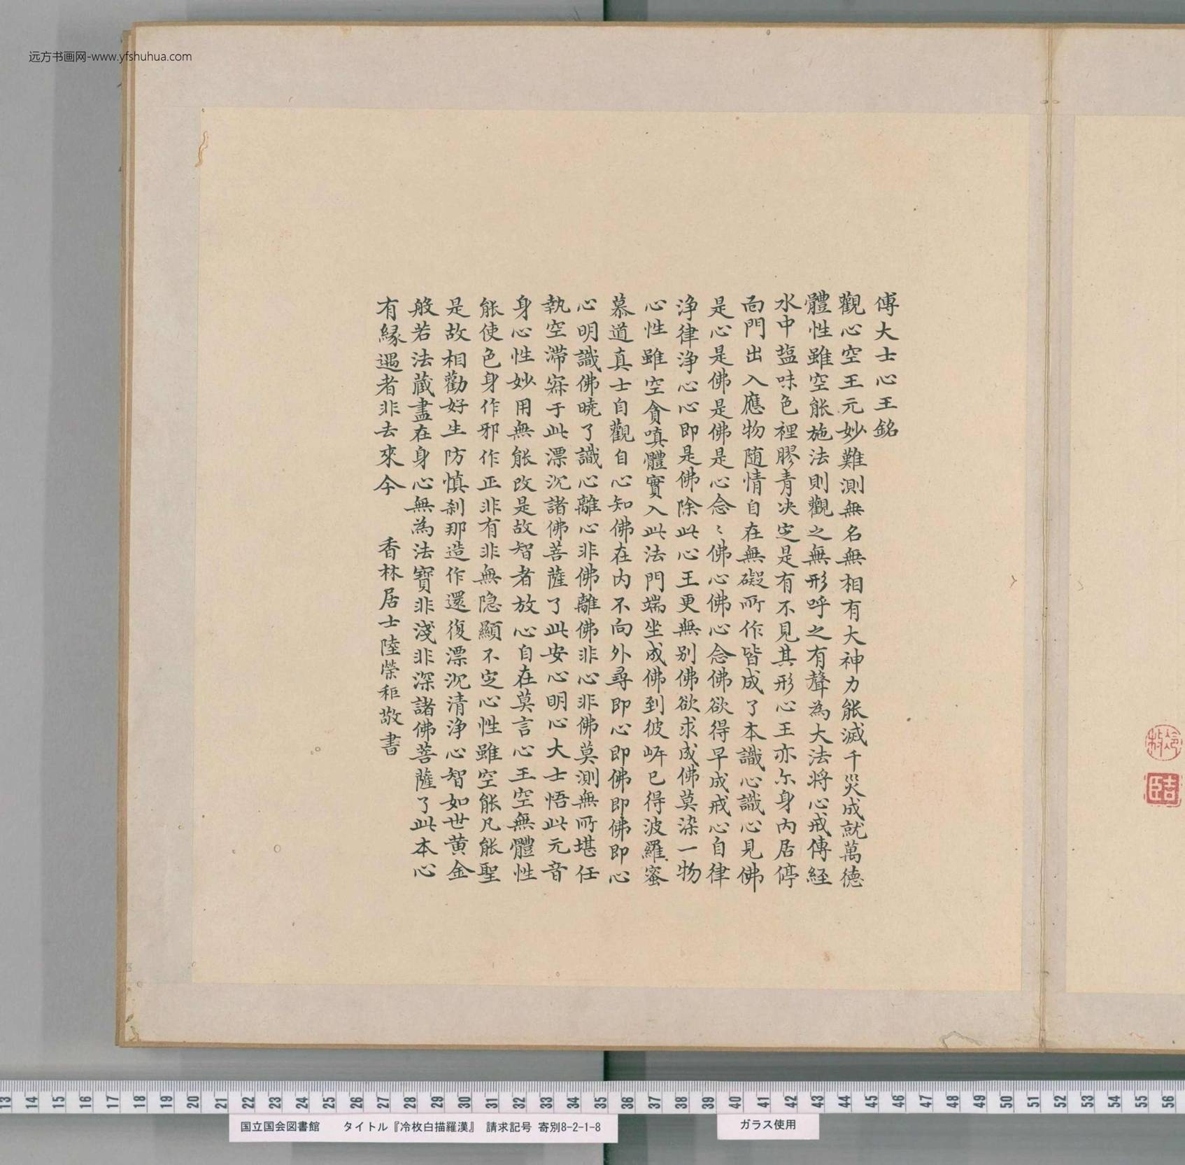 远方书画网-www.yfshuhua.com
傅大士心王銘
觀心空王元妙難測無名無相有大神力能滅千災成就萬德
體性雖空能施法則觀之無形呼之有聲為大法將心戒傳経
水中塩味色裡膠青决定是有不見其形心王亦尓身内居停
靣門出入應物随情自在無礙所作皆成了本識心識心見佛
是心是佛是佛是心念〻佛心佛心念佛欲得早成戒心自律
浄律浄心心即是佛除此心王更無别佛欲求成佛莫染一物
心性雖空貪嗔體實入此法門端坐成佛到彼岍已得波羅蜜
慕道真士自觀自心知佛在内不向外尋即心即佛即佛即心
心明識佛暁了識心離心非佛離佛非心非佛莫測無所堪任
執空滯寂于此漂沉諸佛菩薩了此安心明心大士悟此元音
身心性妙用無能改是故智者放心自在莫言心王空無體性
能使色身作邪作正非有非無隐顯不定心性雖空能凡能聖
是故相勸好生防慎刹那造作還復漂沉清浄心智如世黄金
般若法藏盡在身心無為法寶非淺非深諸佛菩薩了此本心
有緣遇者非去來今 香林居士陸榮秬敬書
冷枚
吉臣
13 14 15 16 17 18 19 20 21 22 23 24 25 26 27 28 29 30 31 32 33 34 35 36 37 38 39 40 41 42 43 44 45 46 47 48 49 50 51 52 53 54 55 56
国立国会図書館 タイトル『冷枚白描羅漢』 請求記号 寄別8-2-1-8
ガラス使用